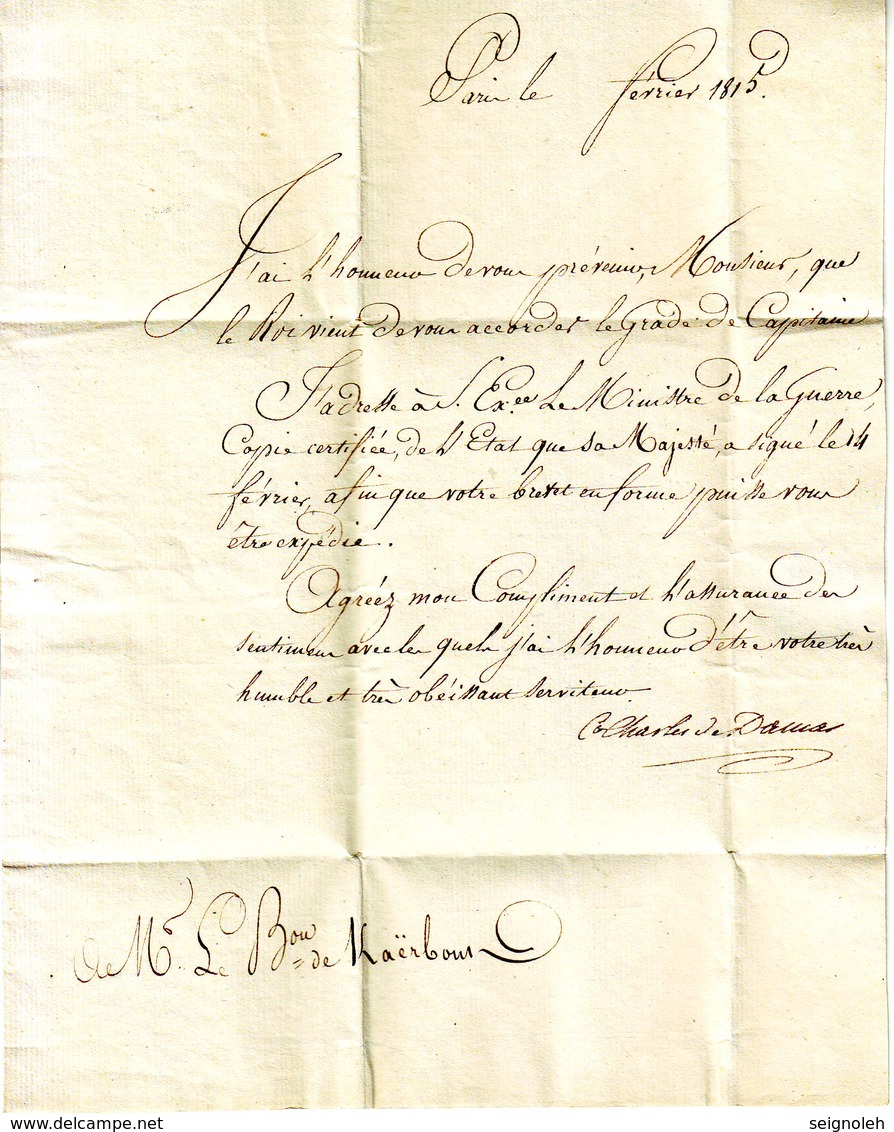 Paris le février 1815.
J'ai l'honneur de vous prévenir, Monsieur, que
le Roi vient de vous accorder le Grade de Capitaine
J'adresse à S. Ex.ce Le Ministre de la Guerre,
Copie certifiée, de l'Etat que sa Majesté, a signé le 14
février, afin que votre brevet en forme puisse vous
être expédié.
Agréez mon Compliment et l'assurance des
sentimens avec les quels j'ai l'honneur d'être votre très
humble et très obéissant serviteur.
Cte Charles de Damas
A Mr. Le Bon de Kaërbout
seignoleh